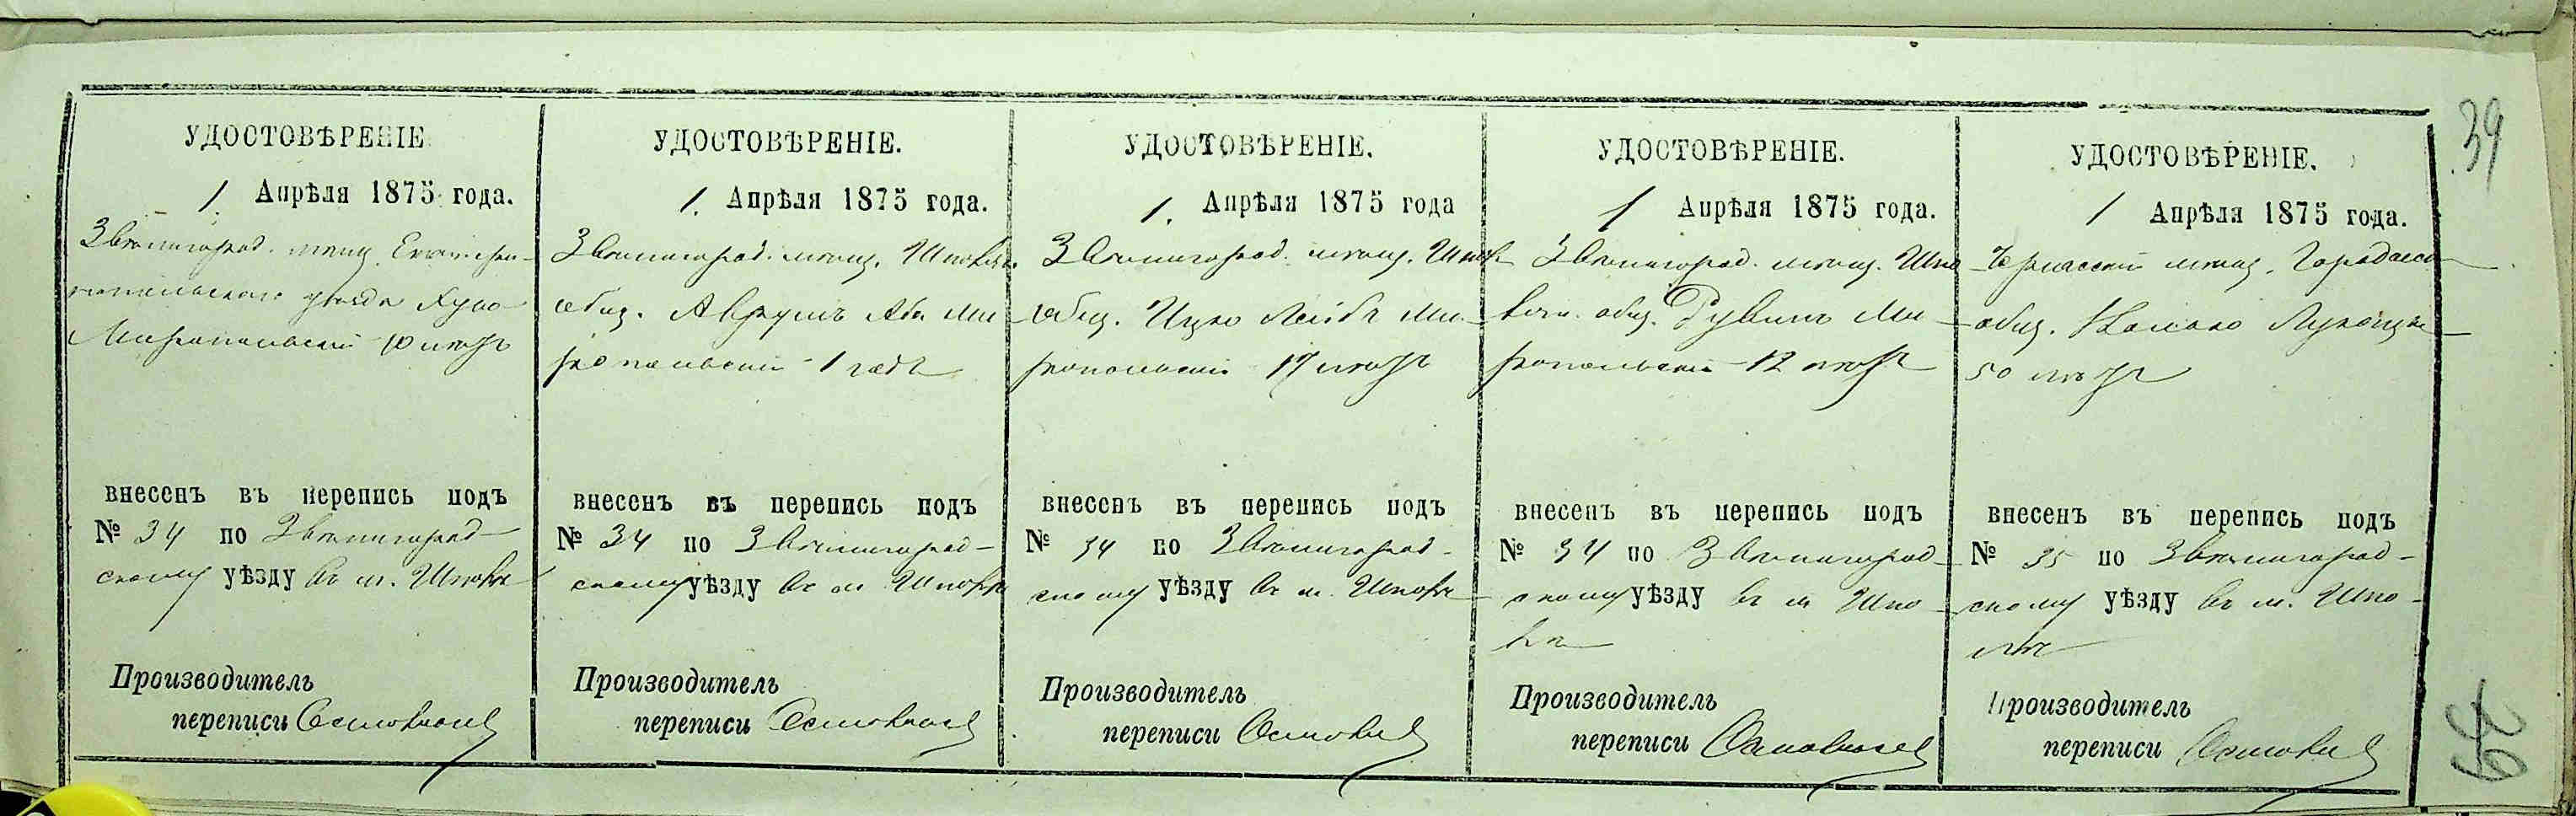 39
УДОСТОВѢРЕНІЕ
1. Апрѣля 1875 года.
Звенигород. мещ. Екатерин-
опольскаго уѣзда
Миропольскій 10 лѣтъ
внесенъ въ перепись подъ
№ 34 по Звенигород-
скому уѣзду въ м. Шполѣ
Производитель
переписи
УДОСТОВѢРЕНІЕ.
1. Апрѣля 1875 года.
Звенигород. мещ. Шполян.
общ. Аврумъ Аба Ми
ропольскій 1 годъ
внесенъ въ перепись подъ
№ 34 по Звенигород-
скому уѣзду въ м Шполѣ
Производитель
переписи
УДОСТОВѢРЕНІЕ.
1. Апрѣля 1875 года
Звенигород. мещ. Шпол
общ. Ицко Лейба Ми-
ропольскій 17 лѣтъ
внесенъ въ перепись подъ
№ 34 по Звенигород-
скому уѣзду въ м. Шполѣ
Производитель
переписи
УДОСТОВѢРЕНІЕ.
1 Апрѣля 1875 года.
Звенигород. мещ. Шпо
лян. общ. Рувинъ Ми-
ропольскій 12 лѣтъ
внесенъ въ перепись подъ
№ 34 по Звенигород-
скому уѣзду въ м Шпо-
лѣ
Производитель
переписи
УДОСТОВѢРЕНІЕ.
1 Апрѣля 1875 года.
Черкасскій мещ.
общ.
50 лѣтъ
внесенъ въ перепись подъ
№ 35 по Звенигород-
скому уѣзду въ м. Шпо-
лѣ
Производитель
переписи